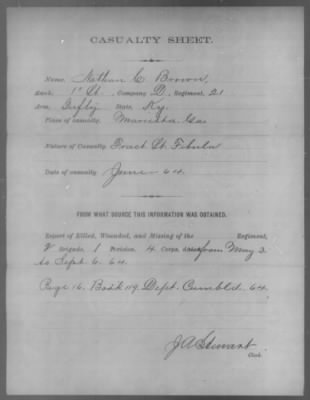 CASUALTY SHEET.
Name, Nathan C Brown,
Rank, 1" Lt., Company D, Regiment, 21
Arm, Infty State, Ky.
Place of casualty, Marietta Ga
Nature of Casualty, Fract Lt. Fibula
Date of casualty June - 64.
FROM WHAT SOURCE THIS INFORMATION WAS OBTAINED.
Report of Killed, Wounded, and Missing of the Regiment,
2 Brigade, 1 Division, 4 Corps, from May 3
to Sept. 6. 64.
Page 16. Book 119. Dept. Cumbld. 64.
J A Stewart
Clerk.